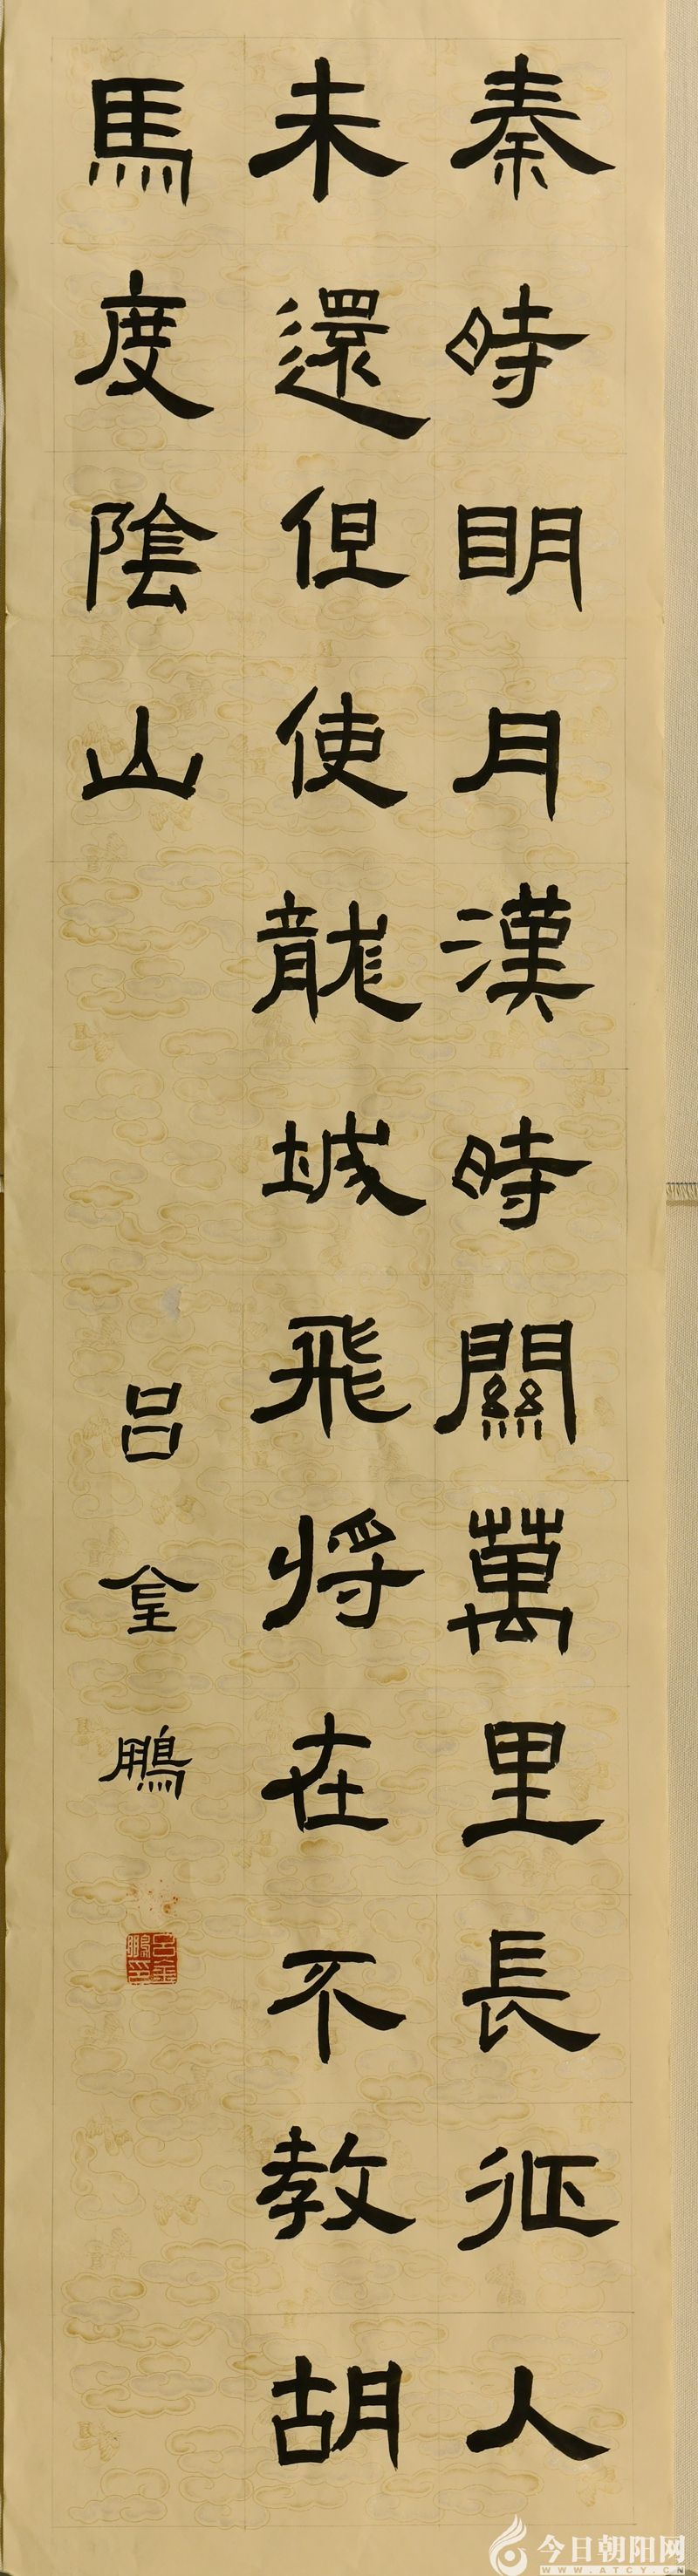 秦時明月漢時關萬里長征人
未還但使龍城飛将在不教胡
馬度陰山
吕金鵬
吕金鵬印
今日朝阳网
WWW.ATCY.CN